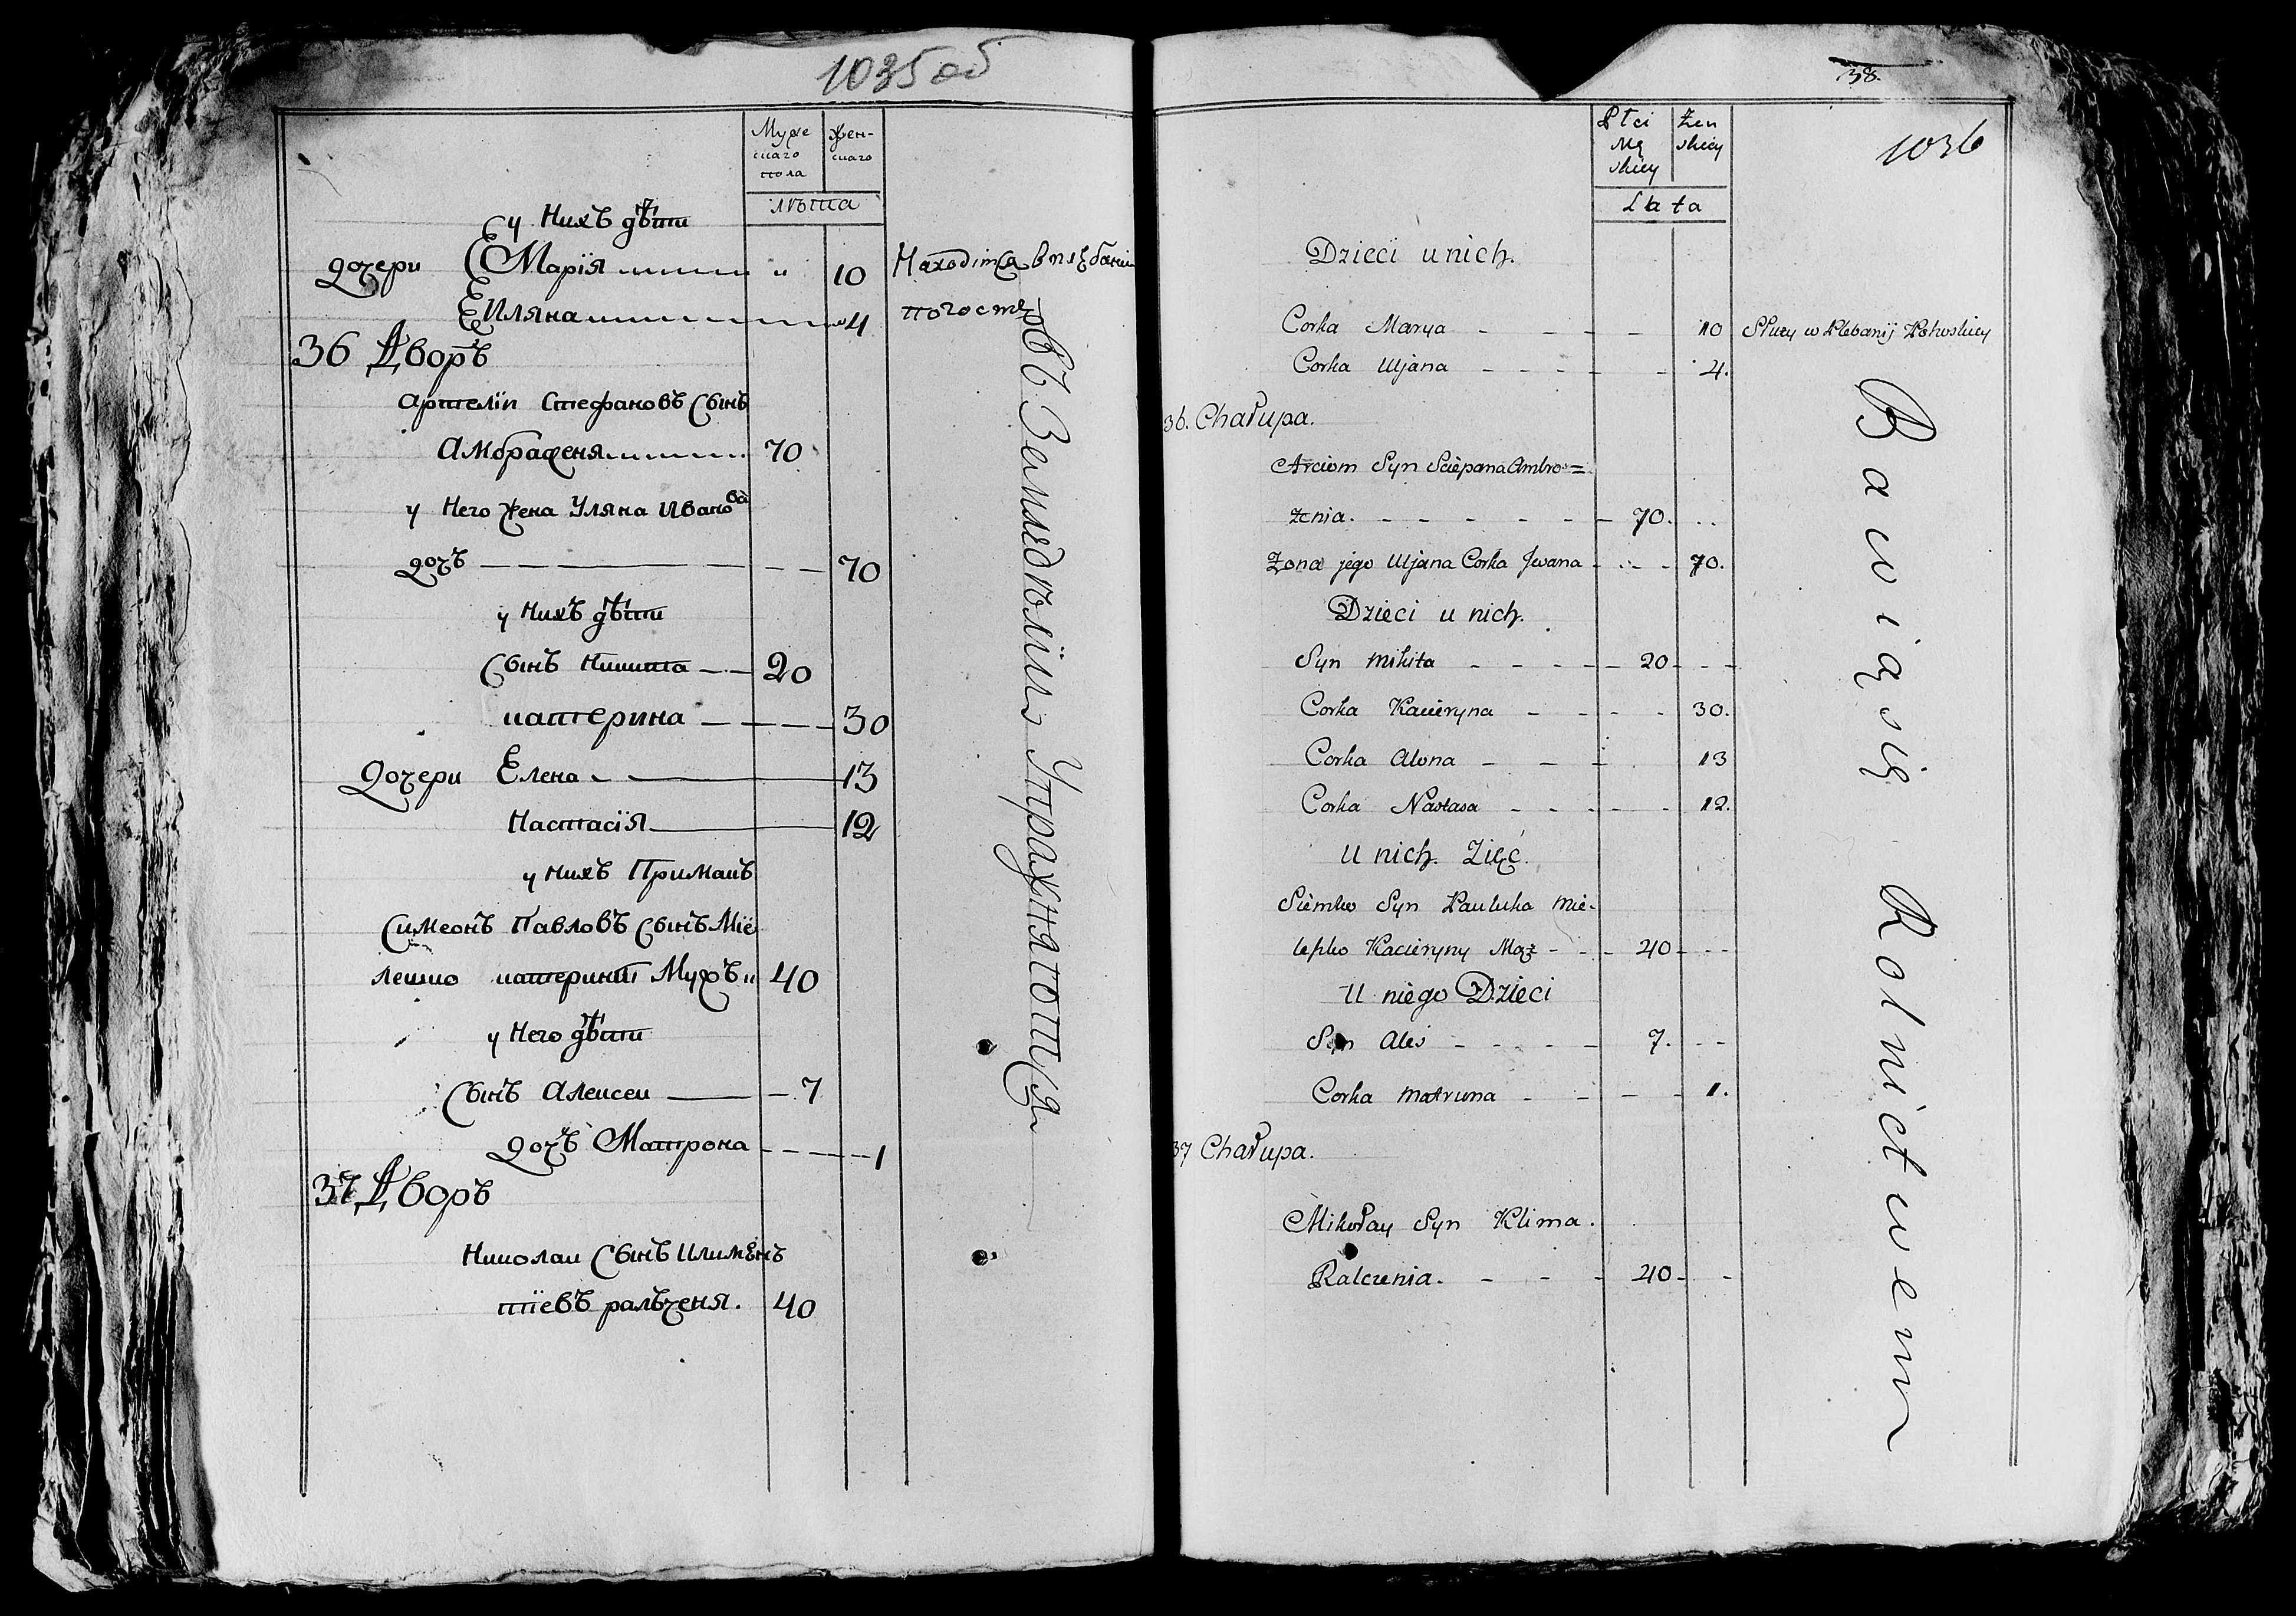 1035 об
Муже
скаго
пола
Жен-
скаго
лѣта
у нихъ дѣти
дочери Марія " 10 Находітся в плебаніи
Иляна 4 погост
36 Дворъ
Артемій Стефановъ сынъ
Амброженя 70
у него жена Уляна Иванова
дочъ 70
у нихъ дѣти
сынъ Никита 20
катерина 30
дочери Елена 13
Настасія 12
у нихъ Примакъ
Симеонъ Павловъ сынъ Міе
лешко катерины Мужъ 40
у него дѣти
сынъ Алексеи 7
дочъ Матрона 1
37 Дворъ
Николаи сынъ Климен
тіевъ ральченя. 40
въ Земледѣліи Упражняются
38.
1036
Płci
Mę
skiey
Żeń
skiey
Lata
Dzieci u nich.
Corka Marya - - - 10 Służy w Plebanij
Corka Uljana - - - - - 4.
36. Chałupa.
Arciom Syn Sciepana Ambro=
żenia. - - - - - - 70. . .
Żona jego Uljana Corka Jwana - - - 70.
Dzieci u nich.
Syn Mikita - - - - - 20 - - -
Corka Kacieryna - - - - 30.
Corka Alona - - - 13
Corka Nastasa - - - - - 12.
U nich Zięć.
Siemko Syn Pauluka Mie-
leszko Kacieryny Mąż - - - 40 - - -
U niego Dzieci
Syn Aleś - - - - - 7. - -
Corka Matruna - - - - 1.
37 Chałupa.
Mikołay Syn Klima.
Ralczenia. - - - - 40 - -
Bawią się Rolnictwem